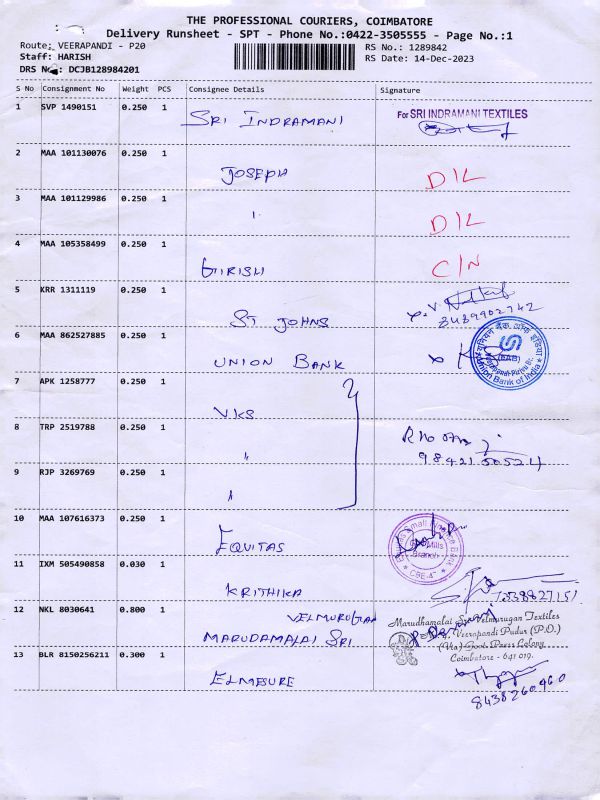 THE PROFESSIONAL COURIERS, COIMBATORE
Delivery Runsheet - SPT - Phone No.:0422-3505555 - Page No.:1
Route: VEERAPANDI - P20
RS No.: 1289842
Staff: HARISH
RS Date: 14-Dec-2023
DRS No: DCJB128984201
S No Consignment No Weight PCS Consignee Details Signature
1 SVP 1490151 0.250 1 SRI INDRAMANI
For SRI INDRAMANI TEXTILES
2 MAA 101130076 0.250 1 JOSEPH D/L
3 MAA 101129986 0.250 1 " D/L
4 MAA 105358499 0.250 1 GIRISH C/N
5 KRR 1311119 0.250 1 ST JOHNS
8489902742
6 MAA 862527885 0.250 1 UNION BANK
यूनियन बैंक ऑफ इंडिया
(EAB)
Union Bank of India
7 APK 1258777 0.250 1 VKS
8 TRP 2519788 0.250 1 "
9 RJP 3269769 0.250 1 "
10 MAA 107616373 0.250 1 EQUITAS
Equitas Small Finance Bank
Mills
Branch
CBE-4
11 IXM 505490858 0.030 1 KRITHIKA
12 NKL 8030641 0.800 1 VELMURUGAN
MARUDAMALAI SRI
Marudhamalai Sri Velmurugan Textiles
4, Veerapandi Pudur (P.O.)
(Via) Govt. Press Colony
Coimbatore - 641 019.
13 BLR 8150256211 0.300 1 ELMESURE
8438260460